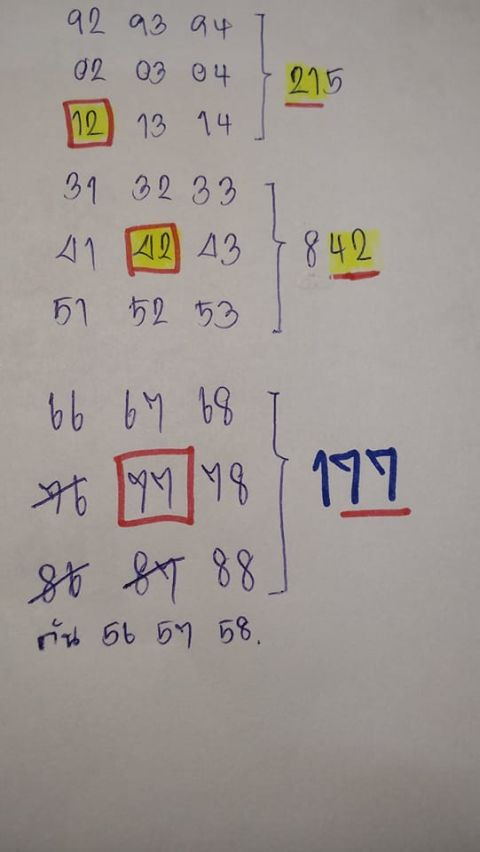 92 93 94
02 03 04 215
12 13 14
31 32 33
41 42 43 842
51 52 53
66 67 68
76 77 78 177
86 87 88
กัน 56 57 58.